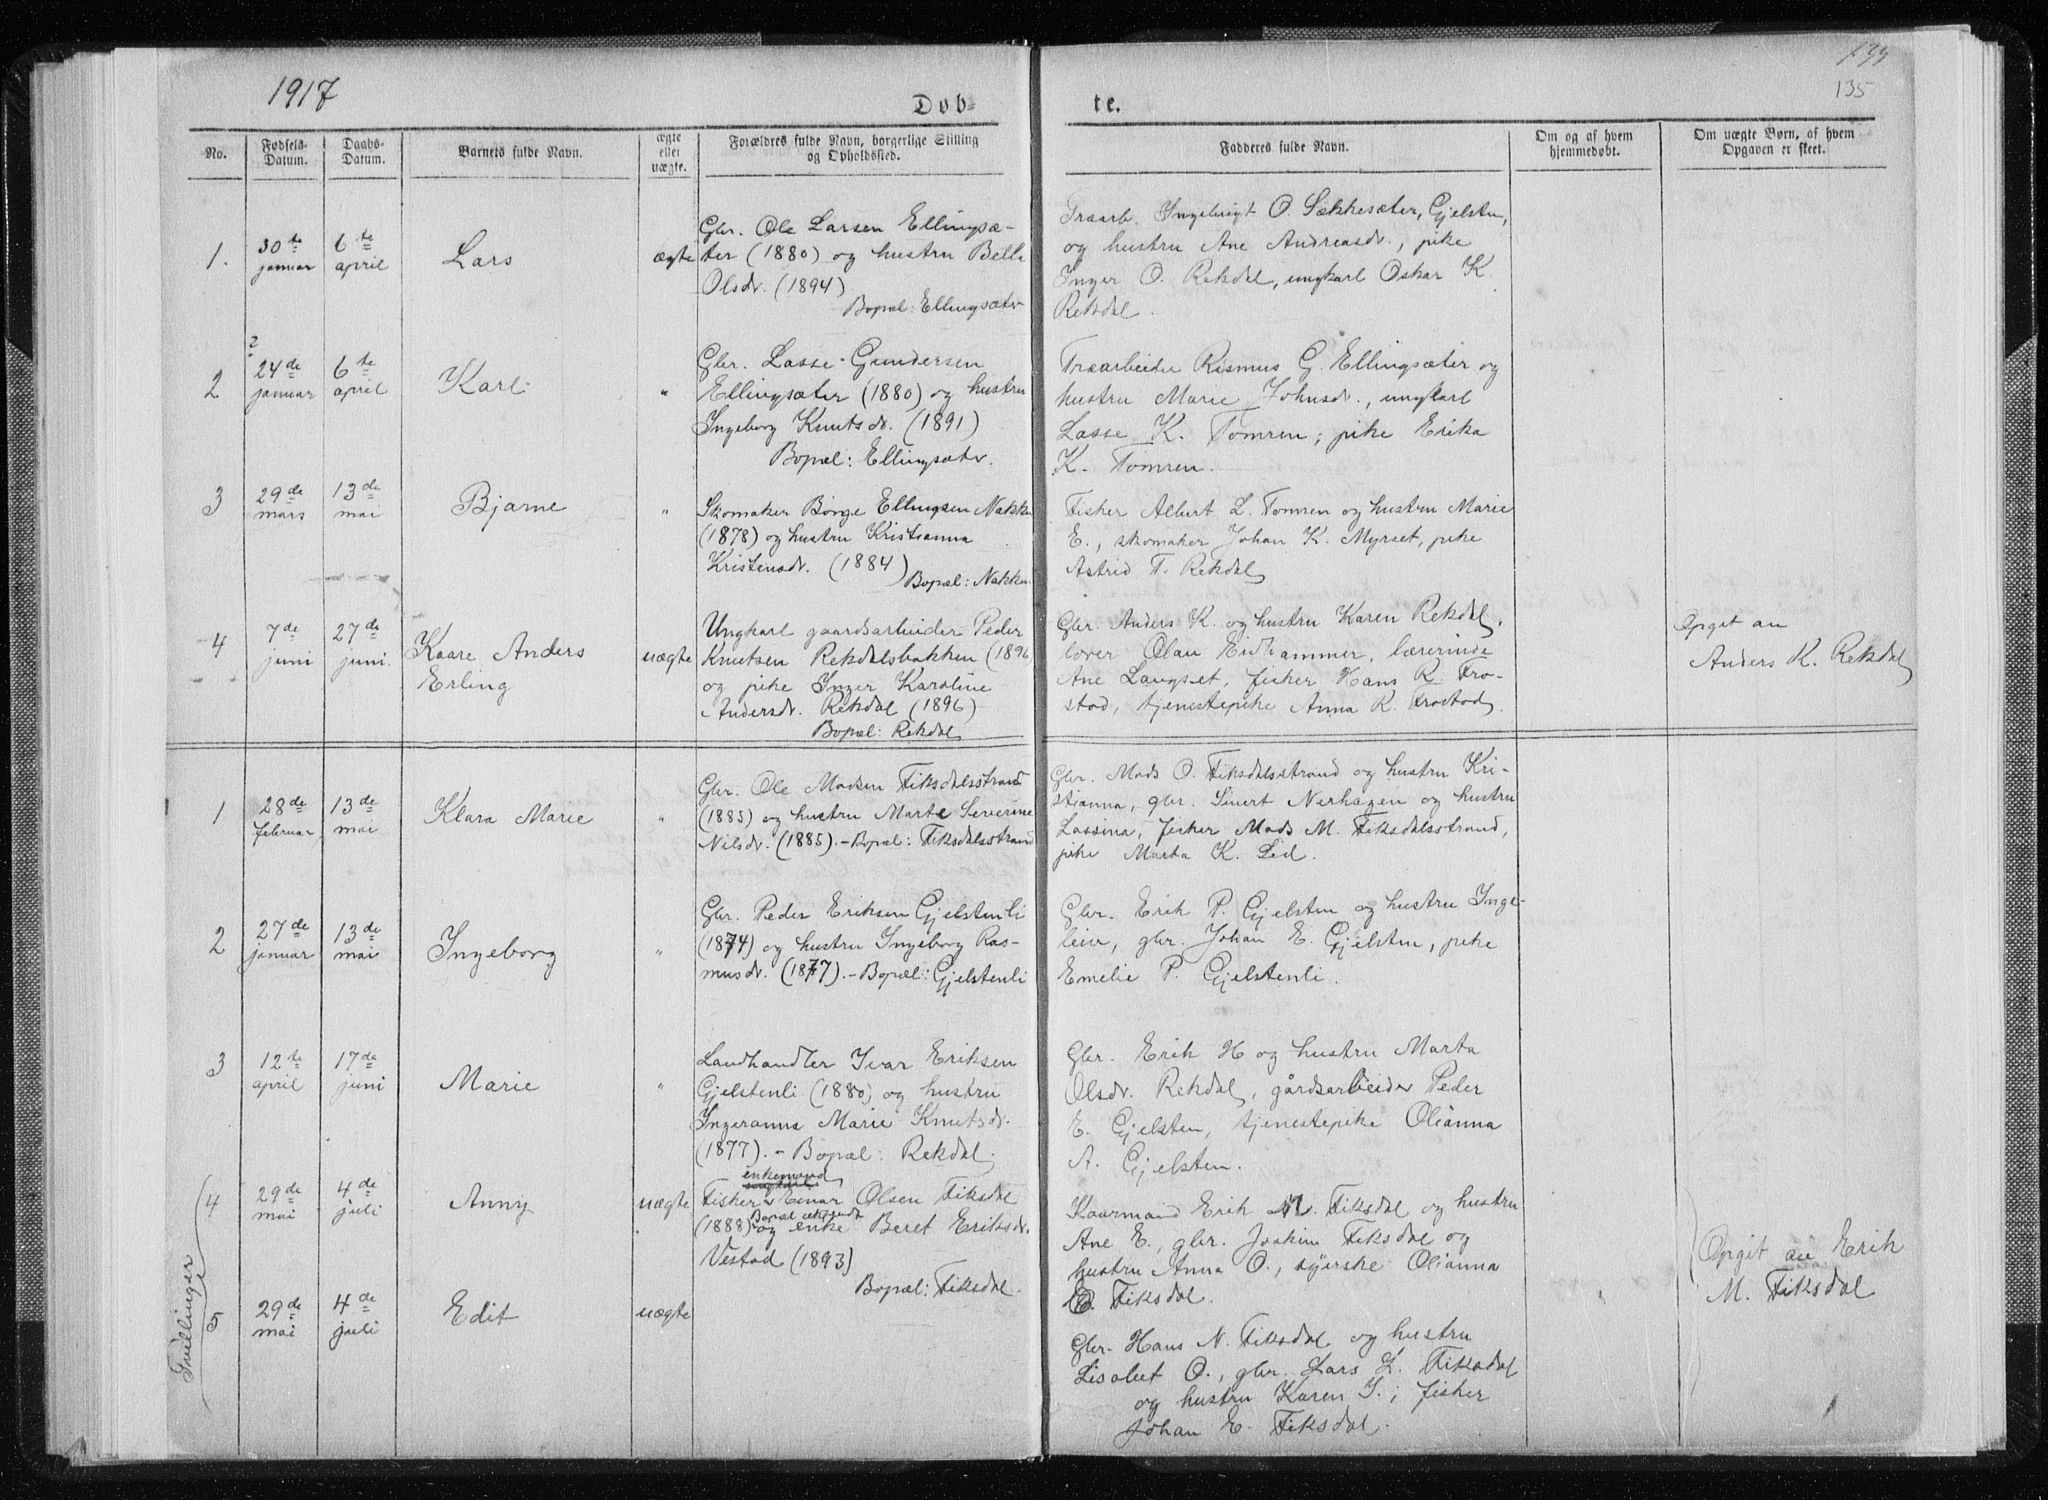 1917
Døb-
te.
135
No.
Fødsels-
Datum.
Daabs-
Datum.
Barnets fulde Navn.
ægte
eller
uægte.
Forældres fulde Navn, borgerlige Stilling
og Opholdssted.
Fadderes fulde Navn.
Om og af hvem
hjemmedøbt.
Om uægte Børn, af hvem
Opgaven er skeet.
1.
30te
januar
6te
april
Lars
ægte
Gbr. Ole Larsen Ellingsæ-
ter (1880) og hustru Bella
Olsdr. (1894)
Bopæl: Ellingsæter
Træarb. Ingebrigt O. Sekkesæter, Gjelsten,
og hustru Ane Andreasdr., pike
Inger O. Rekdal, ungkarl Oskar K.
Rekdal.
2
?
24de
januar
6te
april
Karl
"
Gbr. Lasse Gundersen
Ellingsæter (1880) og hustru
Ingeborg Knutsdr. (1891)
Bopæl: Ellingsæter.
Træarbeider Rasmus G. Ellingsæter og
hustru Marie Johnsdr., ungkarl
Lasse K. Tomren; pike Erika
K. Tomren.
3
29de
mars
13de
mai
Bjarne
"
Skomaker Børge Ellingsen Nakken
(1878) og hustru Kristianna
Kristensdr. (1884)
Bopæl: Nakken
Fisker Albert L. Tomren og hustru Marie
E., skomaker Johan K. Myrset, pike
Astrid T. Rekdal
4
7de
juni
27de
juni.
Kaare Anders
Erling
uægte
Ungkarl gaardsarbeider Peder
Knutsen Rekdalsbakken (1896
og pike Inger Karoline
Andersdr. Rekdal (1896)
Bopæl: Rekdal
Gbr. Anders K. og hustru Karen Rekdal,
lærer Olav Eidhammer, lærerinde
Ane Langset, fisker Hans R. Fro-
stad, tjenestepike Anna R. Frostad.
Opgit av
Anders K. Rekdal
1
28de
februar
13de
mai
Klara Marie
"
Gbr. Ole Madsen Fiksdalsstrand
(1885) og hustru Marte Severine
Nilsdr. (1885). - Bopæl: Fiksdalsstrand
Gbr. Mads O. Fiksdalsstrand og hustru Kri-
stianna, gbr. Sivert Nerhagen og hustru
Lassina, fisker Mads M. Fiksdalsstrand,
pike Marta K. Lid.
2
27de
januar
13de
mai
Ingeborg
"
Gbr. Peder Eriksen Gjelstenli
(1874) og hustru Ingeborg Ras-
musdr. (1877). - Bopæl: Gjelstenli
Gbr. Erik P. Gjelsten og hustru Inge-
leiv, gbr. Johan E. Gjelsten, pike
Emelie P. Gjelstenli.
3
12te
april
17de
juni
Marie
"
Landhandler Ivar Eriksen
Gjelstenli (1880) og hustru
Ingeranna Marie Knutsdr.
(1877). - Bopæl: Rekdal.
Gbr. Erik H og hustru Marta
Olsdr. Rekdal, gårdsarbeider Peder
E. Gjelsten, tjenestepike Olianna
A. Gjelsten.
Tvillinger
4
29de
mai
4de
juli
Anny
uægte
enkemand
Fisker Einar Olsen Fiksdal
Bopæl ukjendt
(1888) og enke Beret Eriksdr.
Vestad (1893)
Bopæl: Fiksdal.
Kaarmand Erik M. Fiksdal og hustru
Ane E., gbr. Joakim Fiksdal og
hustru Anna O., syerske Olianna
E. Fiksdal.
Opgit av Erik
M. Fiksdal
5
29de
mai
4de
juli
Edit
uægte
Gbr. Hans N. Fiksdal og hustru
Lisabet O., gbr. Lars L. Fiksdal
og hustru Karen I.; fisker
Johan E. Fiksdal.